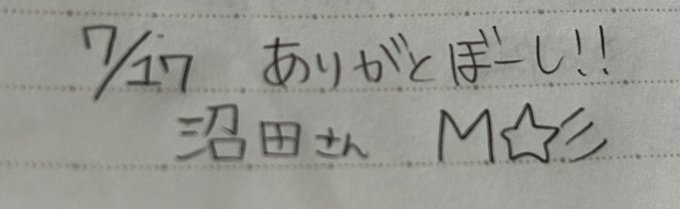 7/17 ありがとぼーし!!
沼田さん M☆彡